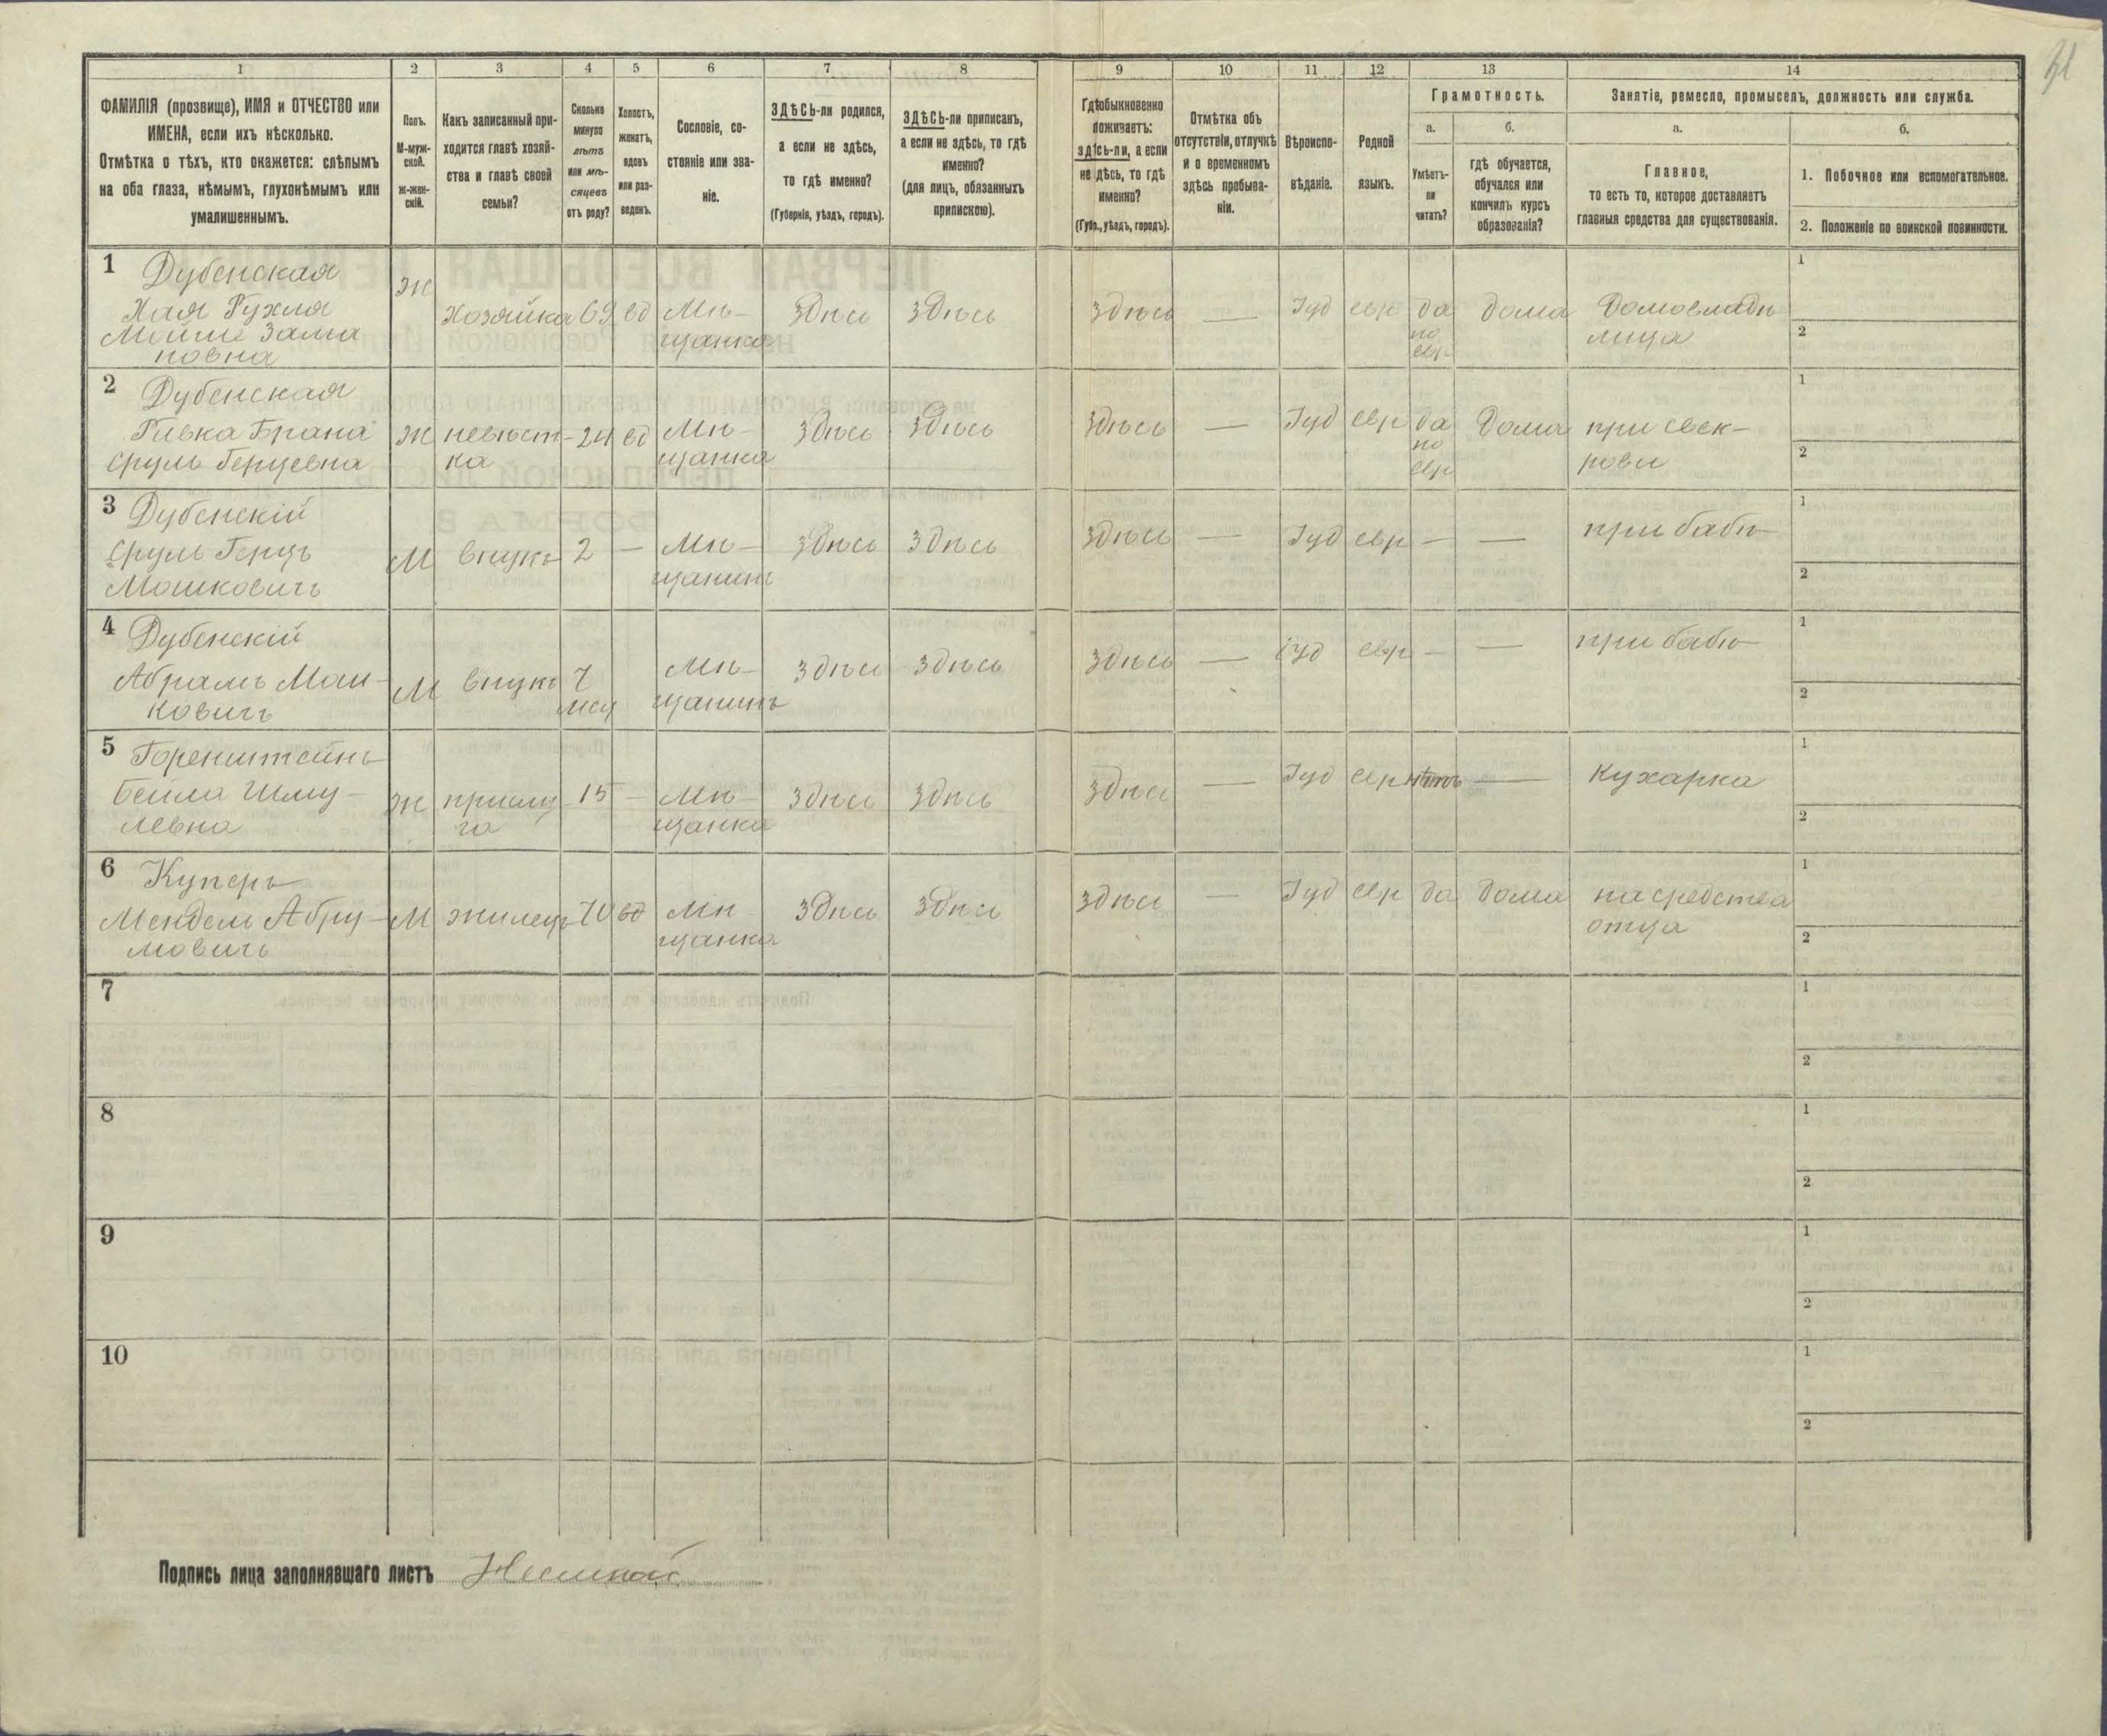 31
1 2 3 4 5 6 7 8 9 10 11 12 13 14
ФАМИЛІЯ (прозвище), ИМЯ и ОТЧЕСТВО или
ИМЕНА, если ихъ нѣсколько.
Отмѣтка о тѣхъ, кто окажется: слѣпымъ
на оба глаза, нѣмымъ, глухонѣмымъ или
умалишеннымъ.
Полъ.
М-муж-
ской.
ж-жен-
скій.
Какъ записанный при-
ходится главѣ хозяй-
ства и главѣ своей
семьи?
Сколько
минуло
лѣтъ
или мѣ-
сяцевъ
отъ роду?
Холостъ,
женатъ,
вдовъ
или раз-
веденъ.
Сословіе, со-
стояніе или зва-
ніе.
ЗДѢСЬ-ли родился,
а если не здѣсь,
то гдѣ именно?
(Губернія, уѣздъ, городъ).
ЗДѢСЬ-ли приписанъ,
а если не здѣсь, то гдѣ
именно?
(для лицъ, обязанныхъ
припискою).
Гдѣ обыкновенно
проживаетъ:
здѣсь-ли, а если
не здѣсь, то гдѣ
именно?
(Губ., уѣздъ, городъ).
Отмѣтка объ
отсутствіи, отлучкѣ
и о временномъ
здѣсь пребыва-
ніи.
Вѣроиспо-
вѣданіе.
Родной
языкъ.
Грамотность.
а.
Умѣетъ-
ли
читать?
б.
гдѣ обучается,
обучался или
кончилъ курсъ
образованія?
Занятіе, ремесло, промыселъ, должность или служба.
а.
Главное,
то есть то, которое доставляетъ
главныя средства для существованія.
б.
1. Побочное или вспомогательное.
2. Положеніе по воинской повинности.
1 Дубенская
Хая Рухля
Мойше Залма
новна
ж
Хозяйка
69
вд
Мѣ-
щанка
здѣсь
здѣсь
здѣсь
—
Іуд
евр
да
по
евр
дома
Домовладѣ
лица
1
2
2 Дубенская
Ривка Брана
Сруль Герцевна
ж
невѣст-
ка
24
вд
Мѣ-
щанка
здѣсь
здѣсь
здѣсь
—
Іуд
евр
да
по
евр
Дома
при свек-
рови
1
2
3 Дубенскій
Сруль Герцъ
Мошковичъ
М
внукъ
2
—
Мѣ-
щанинъ
здѣсь
здѣсь
здѣсь
—
Іуд
евр
—
—
при бабѣ
1
2
4 Дубенскій
Абрамъ Мош-
ковичъ
М
внукъ
7
мсц
Мѣ-
щанинъ
здѣсь
здѣсь
здѣсь
—
іуд
евр
—
—
при бабѣ
1
2
5 Горенштейнъ
Бейла Шму-
левна
ж
прислу
га
15
—
Мѣ-
щанка
здѣсь
здѣсь
здѣсь
—
Іуд
евр
нѣтъ
—
кухарка
1
2
6 Куперъ
Мендель Абру-
мовичъ
М
жилецъ
70
вд
Мѣ
щанка
здѣсь
здѣсь
здѣсь
—
Іуд
евр
да
дома
на средства
отца
1
2
7
1
2
8
1
2
9
1
2
10
1
2
Подпись лица заполнявшаго листъ